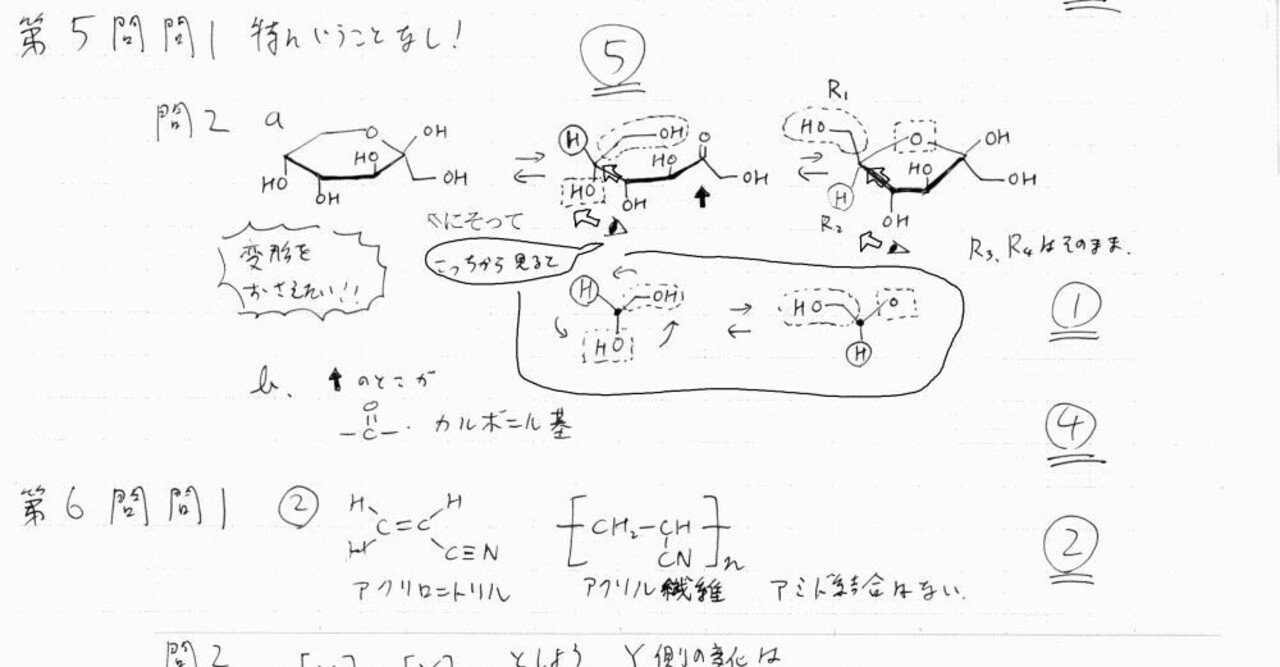 第5問 問1 特にいうことなし!
⑤
問2 a
O OH HO OH HO OH
H OH O HO OH HO OH
R₁ HO O OH HO OH H OH R₂
R₃、R₄はそのまま.
変形を
おさえたい!!
にそって
こっちから見ると
H OH HO
HO O H
①
b. ↑のとこが
O
-C- . カルボニル基
④
第6問 問1 ② H H C=C H C≡N
[CH₂-CH]n
CN
アクリロニトリル アクリル繊維 アミド結合はない.
②
問2 としよう Y側の変化は